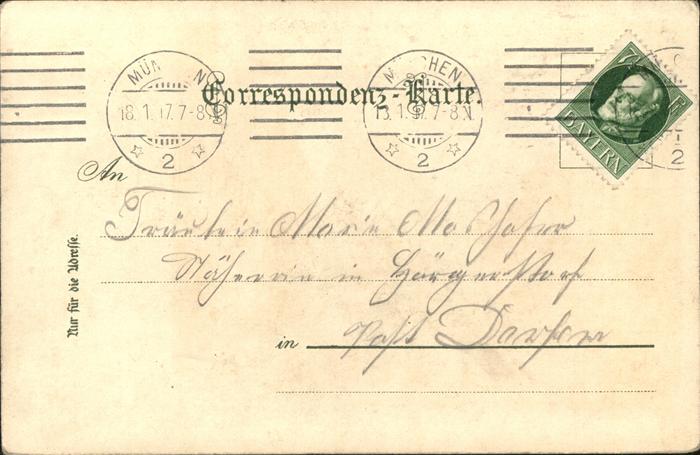 MÜNCHEN
18.1.17.7-8N
2
MÜNCHEN
18.1.17.7-8N
2
Correspondenz-Karte.
7
BAYERN
2
An
Fräulein Marie Moshofer
Näherin in
in Post
Nur für die Adresse.